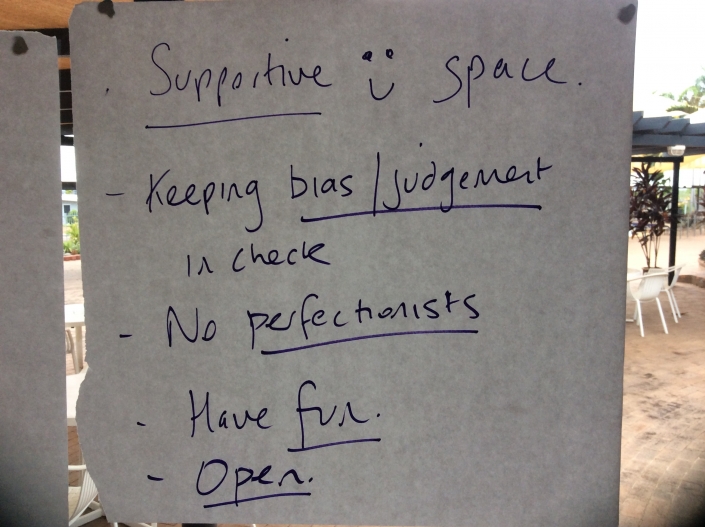 Supportive space.
- Keeping bias/judgement
in check
- No perfectionists
- Have fun.
- Open.